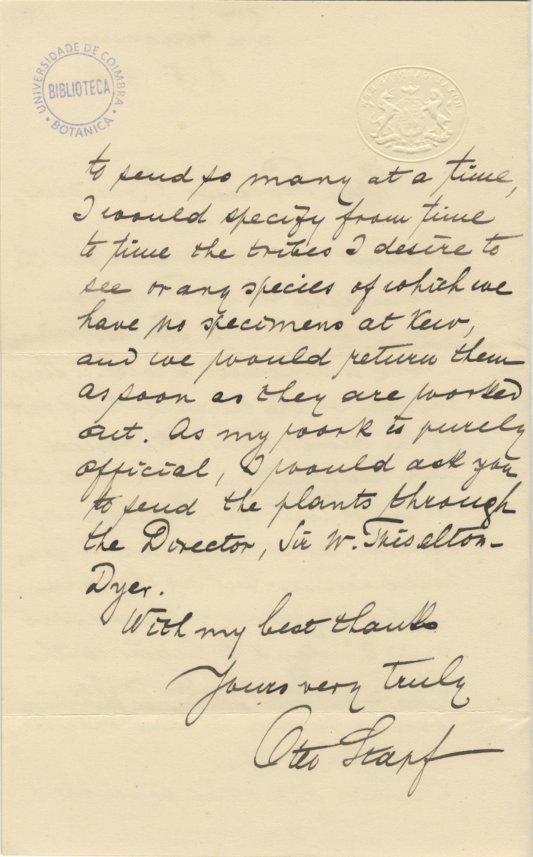 UNIVERSIDADE DE COIMBRA
BIBLIOTECA
BOTANICA
to send so many at a time,
I would specify from time
to time the tribes I desire to
see or any species of which we
have no specimens at Kew,
and we would return them
as soon as they are worked
out. As my work is purely
official, I would ask you
to send the plants through
the Director, Sir W. Thiselton-
Dyer.
With my best thanks
Yours very truly
Otto Stapf